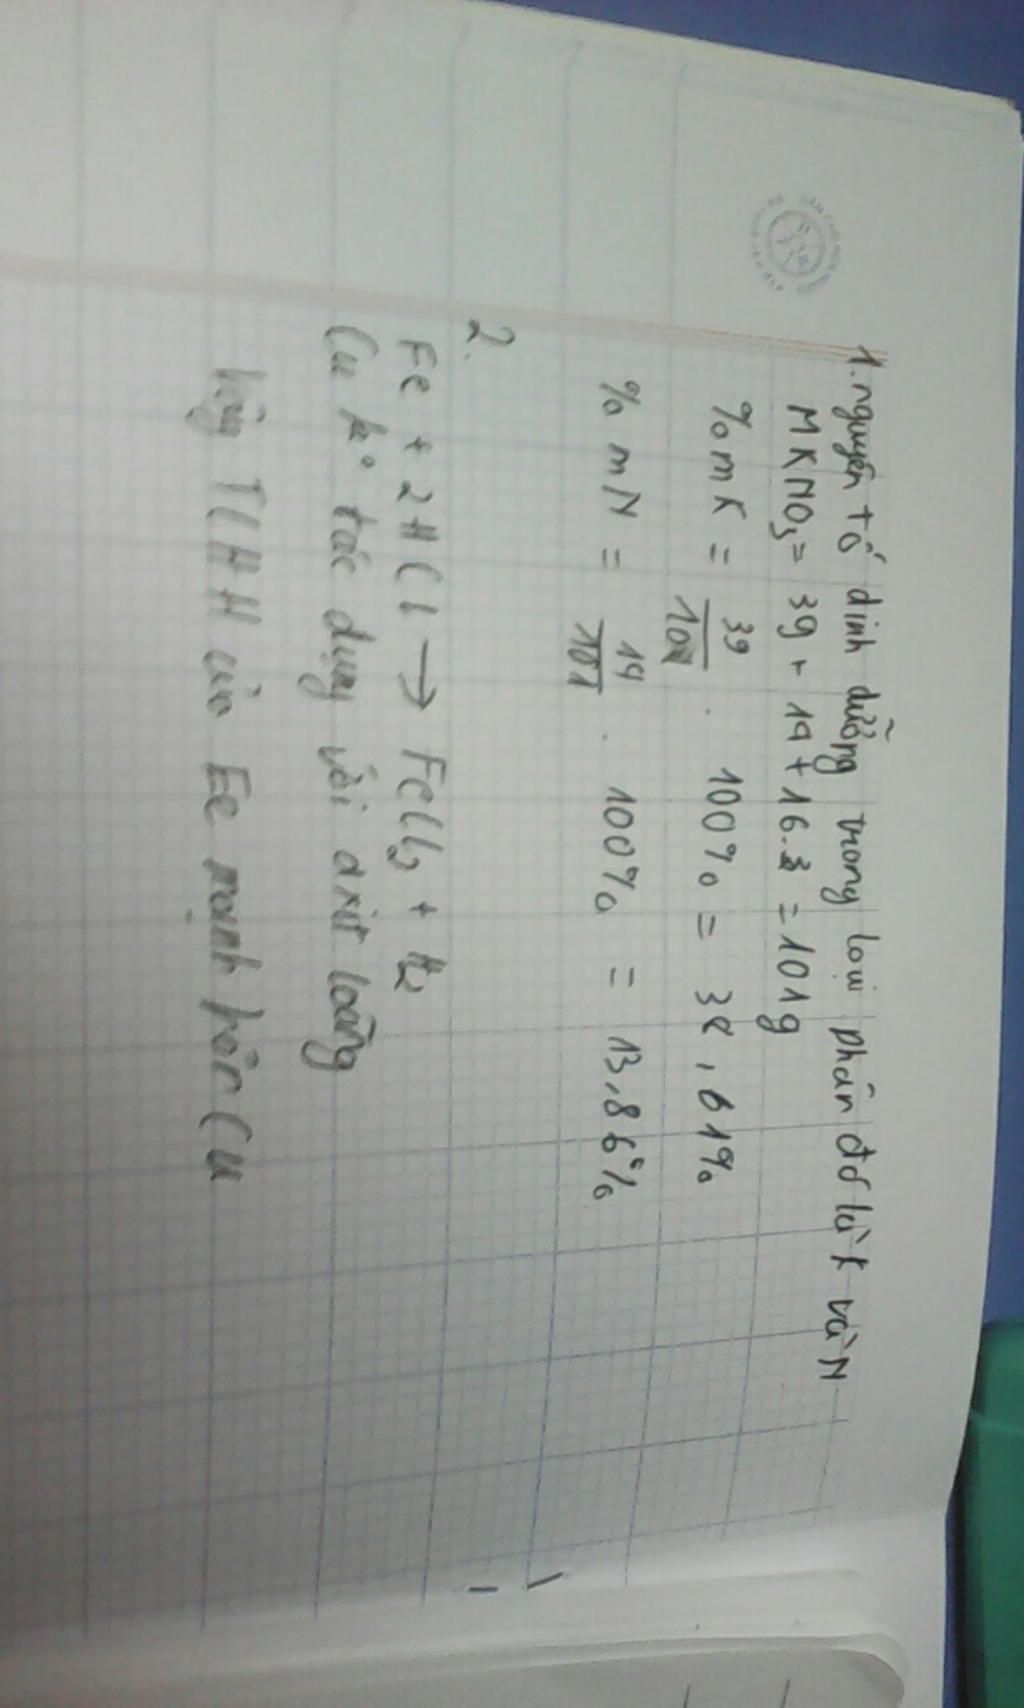 1. nguyên tố dinh dưỡng trong loại phân đó là K và N
MKNO3 = 39 + 14 + 16.3 = 101g
%mK = 39/101 . 100% = 38,61%
%mN = 14/101 . 100% = 13,86%
2.
Fe + 2HCl → FeCl2 + H2
Cu ko tác dụng với axit loãng
Vậy TCHH của Fe mạnh hơn Cu